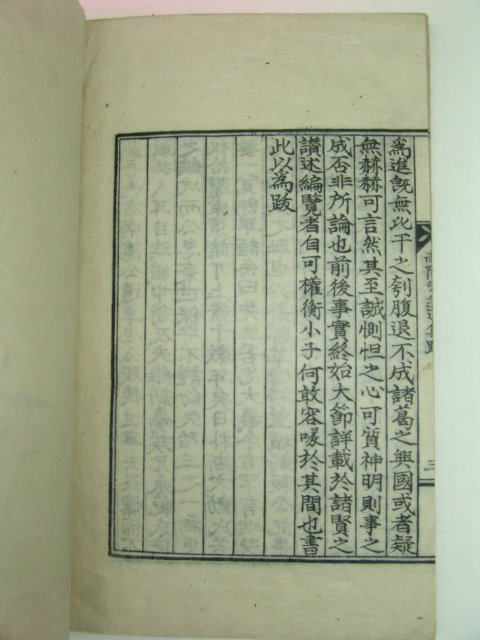 爲進旣無比干之刳腹退不成諸葛之興國或者疑
無赫赫可言然其至誠惻怛之心可質神明則事之
成否非所論也前後事實終始大節詳載於諸賢之
讃述編覽者自可權衡小子何敢容喙於其間也書
此以爲跋